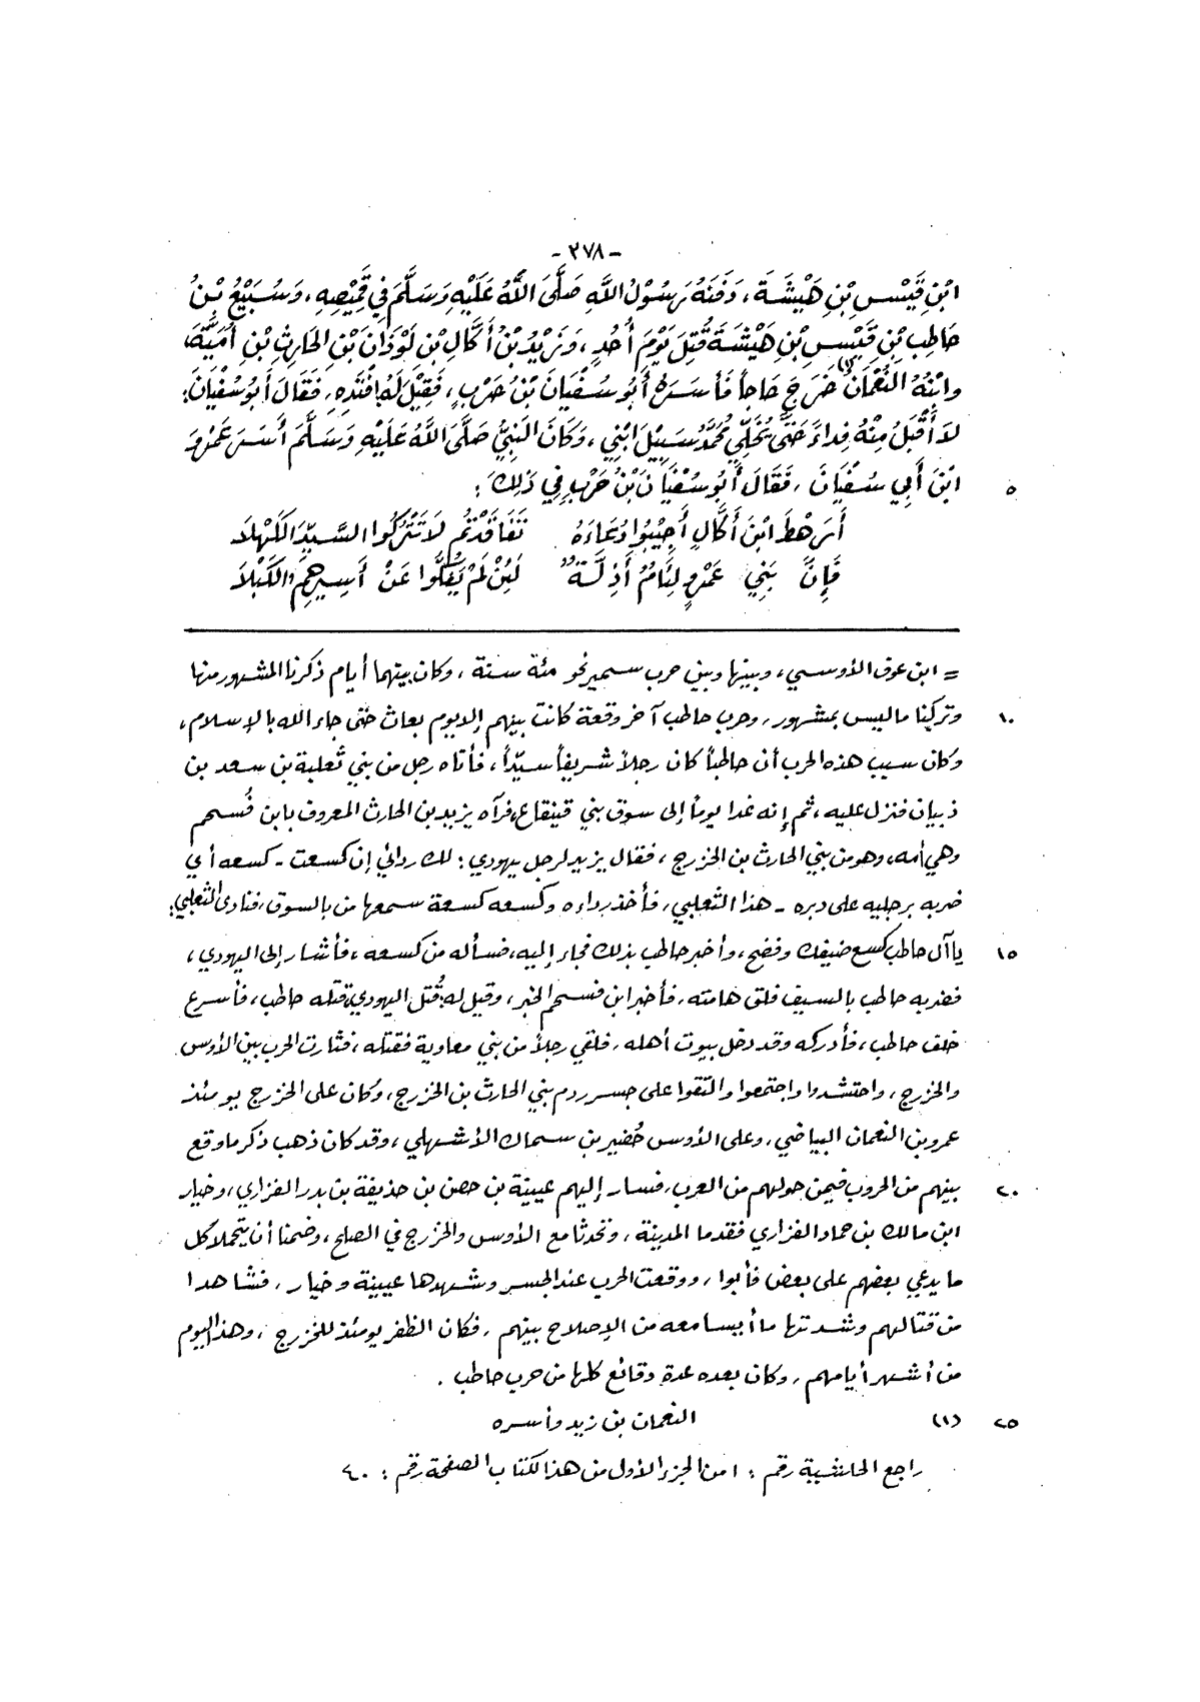 - ٢٧٨ -
ابْنِ قَيْسِ بْنِ هَيْشَةَ، دَفَنَهُ رَسُوْلُ اللَّهِ صَلَّى اللَّهُ عَلَيْهِ وَسَلَّمَ فِي قَمِيْصِهِ، وَسُبَيْعُ بْنُ
حَاطِبِ بْنِ قَيْسِ بْنِ هَيْشَةَ قُتِلَ يَوْمَ أُحُدٍ، وَزَيْدُ بْنُ أَكَّالِ بْنِ لَوْذَانَ بْنِ الحَارِثِ بْنِ أُمَيَّةَ،
وابْنُهُ النُّعْمَانُ (١) خَرَجَ حَاجاً فَأَسَرَهُ أَبُو سُفْيَانَ بْنُ حَرْبٍ، فَقِيْلَ لَهُ: افْتَدِهِ، فَقَالَ أَبُو سُفْيَانَ:
لاَ أَقْبَلُ مِنْهُ فِدَاءً حَتَّى يُخَلِّي مُحَمَّدٌ سَبِيْلَ ابْنِي، وَكَانَ النَّبِيُّ صَلَّى اللَّهُ عَلَيْهِ وَسَلَّمَ أَسَرَ عَمْرَو
٥ ابْنَ أَبِي سُفْيَانَ، فَقَالَ أَبُو سُفْيَانَ بْنُ حَرْبٍ فِي ذَلِكَ:
أَرَهْطَ ابْنَ أَكَّالٍ أَجِيْبُوا دُعَاءَهُ تَفَاقَدْتُمُ لاَ تَتْرُكُوا السَّيِّدَ الكَهْلاَ
فَإِنَّ بَنِي عَمْرٍو لِئَامٌ أَذِلَّةٌ لَئِنْ لَمْ يَفُكُّوا عَنْ أَسِيرِهِمُ الكَبْلاَ
= ابن عوف الأوسي، وبينها وبين حرب سمير نحو مئة سنة، وكان بينهما أيام ذكرنا المشهور منها
١٠ وتركنا ما ليس بمشهور، وحرب حاطب آخر وقعة كانت بينهم إلا يوم بعاث حتى جاء الله بالإسلام،
وكان سبب هذه الحرب أن حاطباً كان رجلاً شريفاً سيّداً، فأتاه رجل من بني ثعلبة بن سعد بن
ذبيان فنزل عليه، ثم إنه غدا يوماً إلى سوق بني قينقاع، فرآه يزيد بن الحارث المعروف بابن فُسحم
وهي أمه، وهو من بني الحارث بن الخزرج، فقال يزيد لرجل يهودي: لك ردائي إن كسعت - كسعه أي
ضربه برجليه على دبره - هذا الثعلبي، فأخذ رداءه وكسعه كسعة سمعها من بالسوق، فنادى الثعلبي:
١٥ يا آل حاطب كسع ضيفك وفضح، وأخبر حاطب بذلك فجاء إليه، فسأله من كسعه، فأشار إلى اليهودي،
فضربه حاطب بالسيف فلق هامته، فأخبر ابن فسحم الخبر، وقيل له: قُتل اليهودي، قتله حاطب، فأسرع
خلف حاطب، فأدركه وقد دخل بيوت أهله، فلقي رجلاً من بني معاوية فقتله، فثارت الحرب بين الأوس
والخزرج، واحتشدوا واجتمعوا والتقوا على جسر ردم بني الحارث بن الخزرج، وكان على الخزرج يومئذ
عمرو بن النعمان البياضي، وعلى الأوس حُضير بن سماك الأشهلي، وقد كان ذهب ذكر ما وقع
٢٠ بينهم من الحروب فيمن حولهم من العرب، فسار إليهم عيينة بن حصن بن حذيفة بن بدر الفزاري، وخيار
ابن مالك بن حماد الفزاري فقدما المدينة، وتحدثا مع الأوس والخزرج في الصلح، وضمنا أن يتحملا كل
ما يدعي بعضهم على بعض فأبوا، ووقعت الحرب عند الجسر وشهدها عيينة وخيار، فشاهدا
من قتالهم وشدتها ما أيسا معه من الإصلاح بينهم، فكان الظفر يومئذ للخزرج، وهذا اليوم
من أشهر أيامهم، وكان بعده عدة وقائع كلها من حرب حاطب.
٢٥ (١) النعمان بن زيد وأسره
راجع الحاشية رقم: ١ من الجزء الأول من هذا الكتاب الصفحة رقم: ٤٠